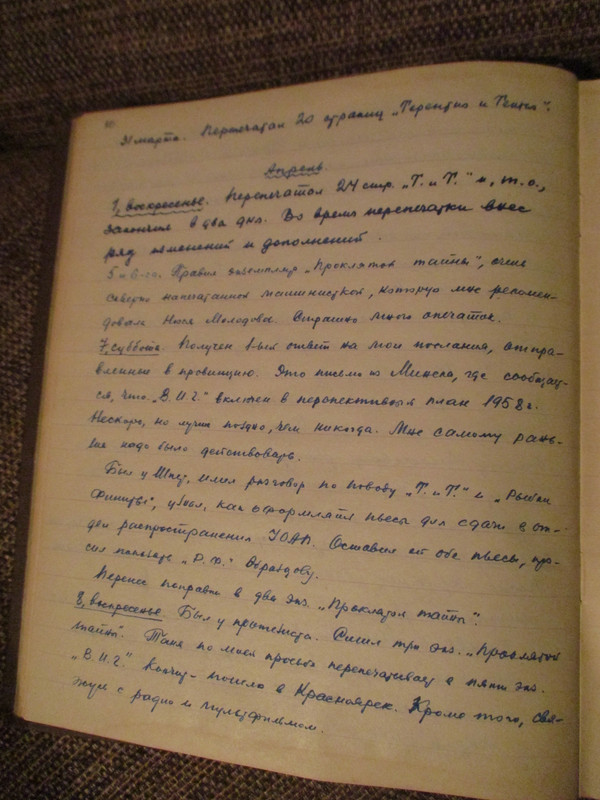 31 марта. Перепечатал 20 страниц „Терентия и Тентия".
Апрель.
1, воскресенье. Перепечатал 24 стр. „Т. и Т." и, т.о.,
закончил в два дня. Во время перепечатки внес
ряд изменений и дополнений.
5 и 6-го. Правил экземпляр „Проклятой тайны", очень
скверно напечатанной машинисткой, которую мне рекомен-
довала Нюся Молодова. Страшно много опечаток.
7, суббота. Получен 1-ый ответ на мои послания, отпра-
вленные в провинцию. Это письмо из Минска, где сообщает-
ся, что „В.И.Г." включен в перспективный план 1958 г.
Нескоро, но лучше поздно, чем никогда. Мне самому рань-
ше надо было действовать.
Был у имел разговор по поводу „Т. и Т." и „Рыбки
Финиты", узнал, как оформлять пьесы для сдачи в от-
дел распространения УОАП. Оставил ей обе пьесы, про-
сил показать „Р.Ф." Образцову.
Перенес поправки в два экз. „Проклятой тайны".
8, воскресенье. Был у Сшил три экз. „Проклятой
тайны". Таня по моей просьбе перепечатывает в пяти экз.
„В.И.Г." Кончит - пошлю в Красноярск. Кроме того, свя-
жусь с радио и мультфильмом.